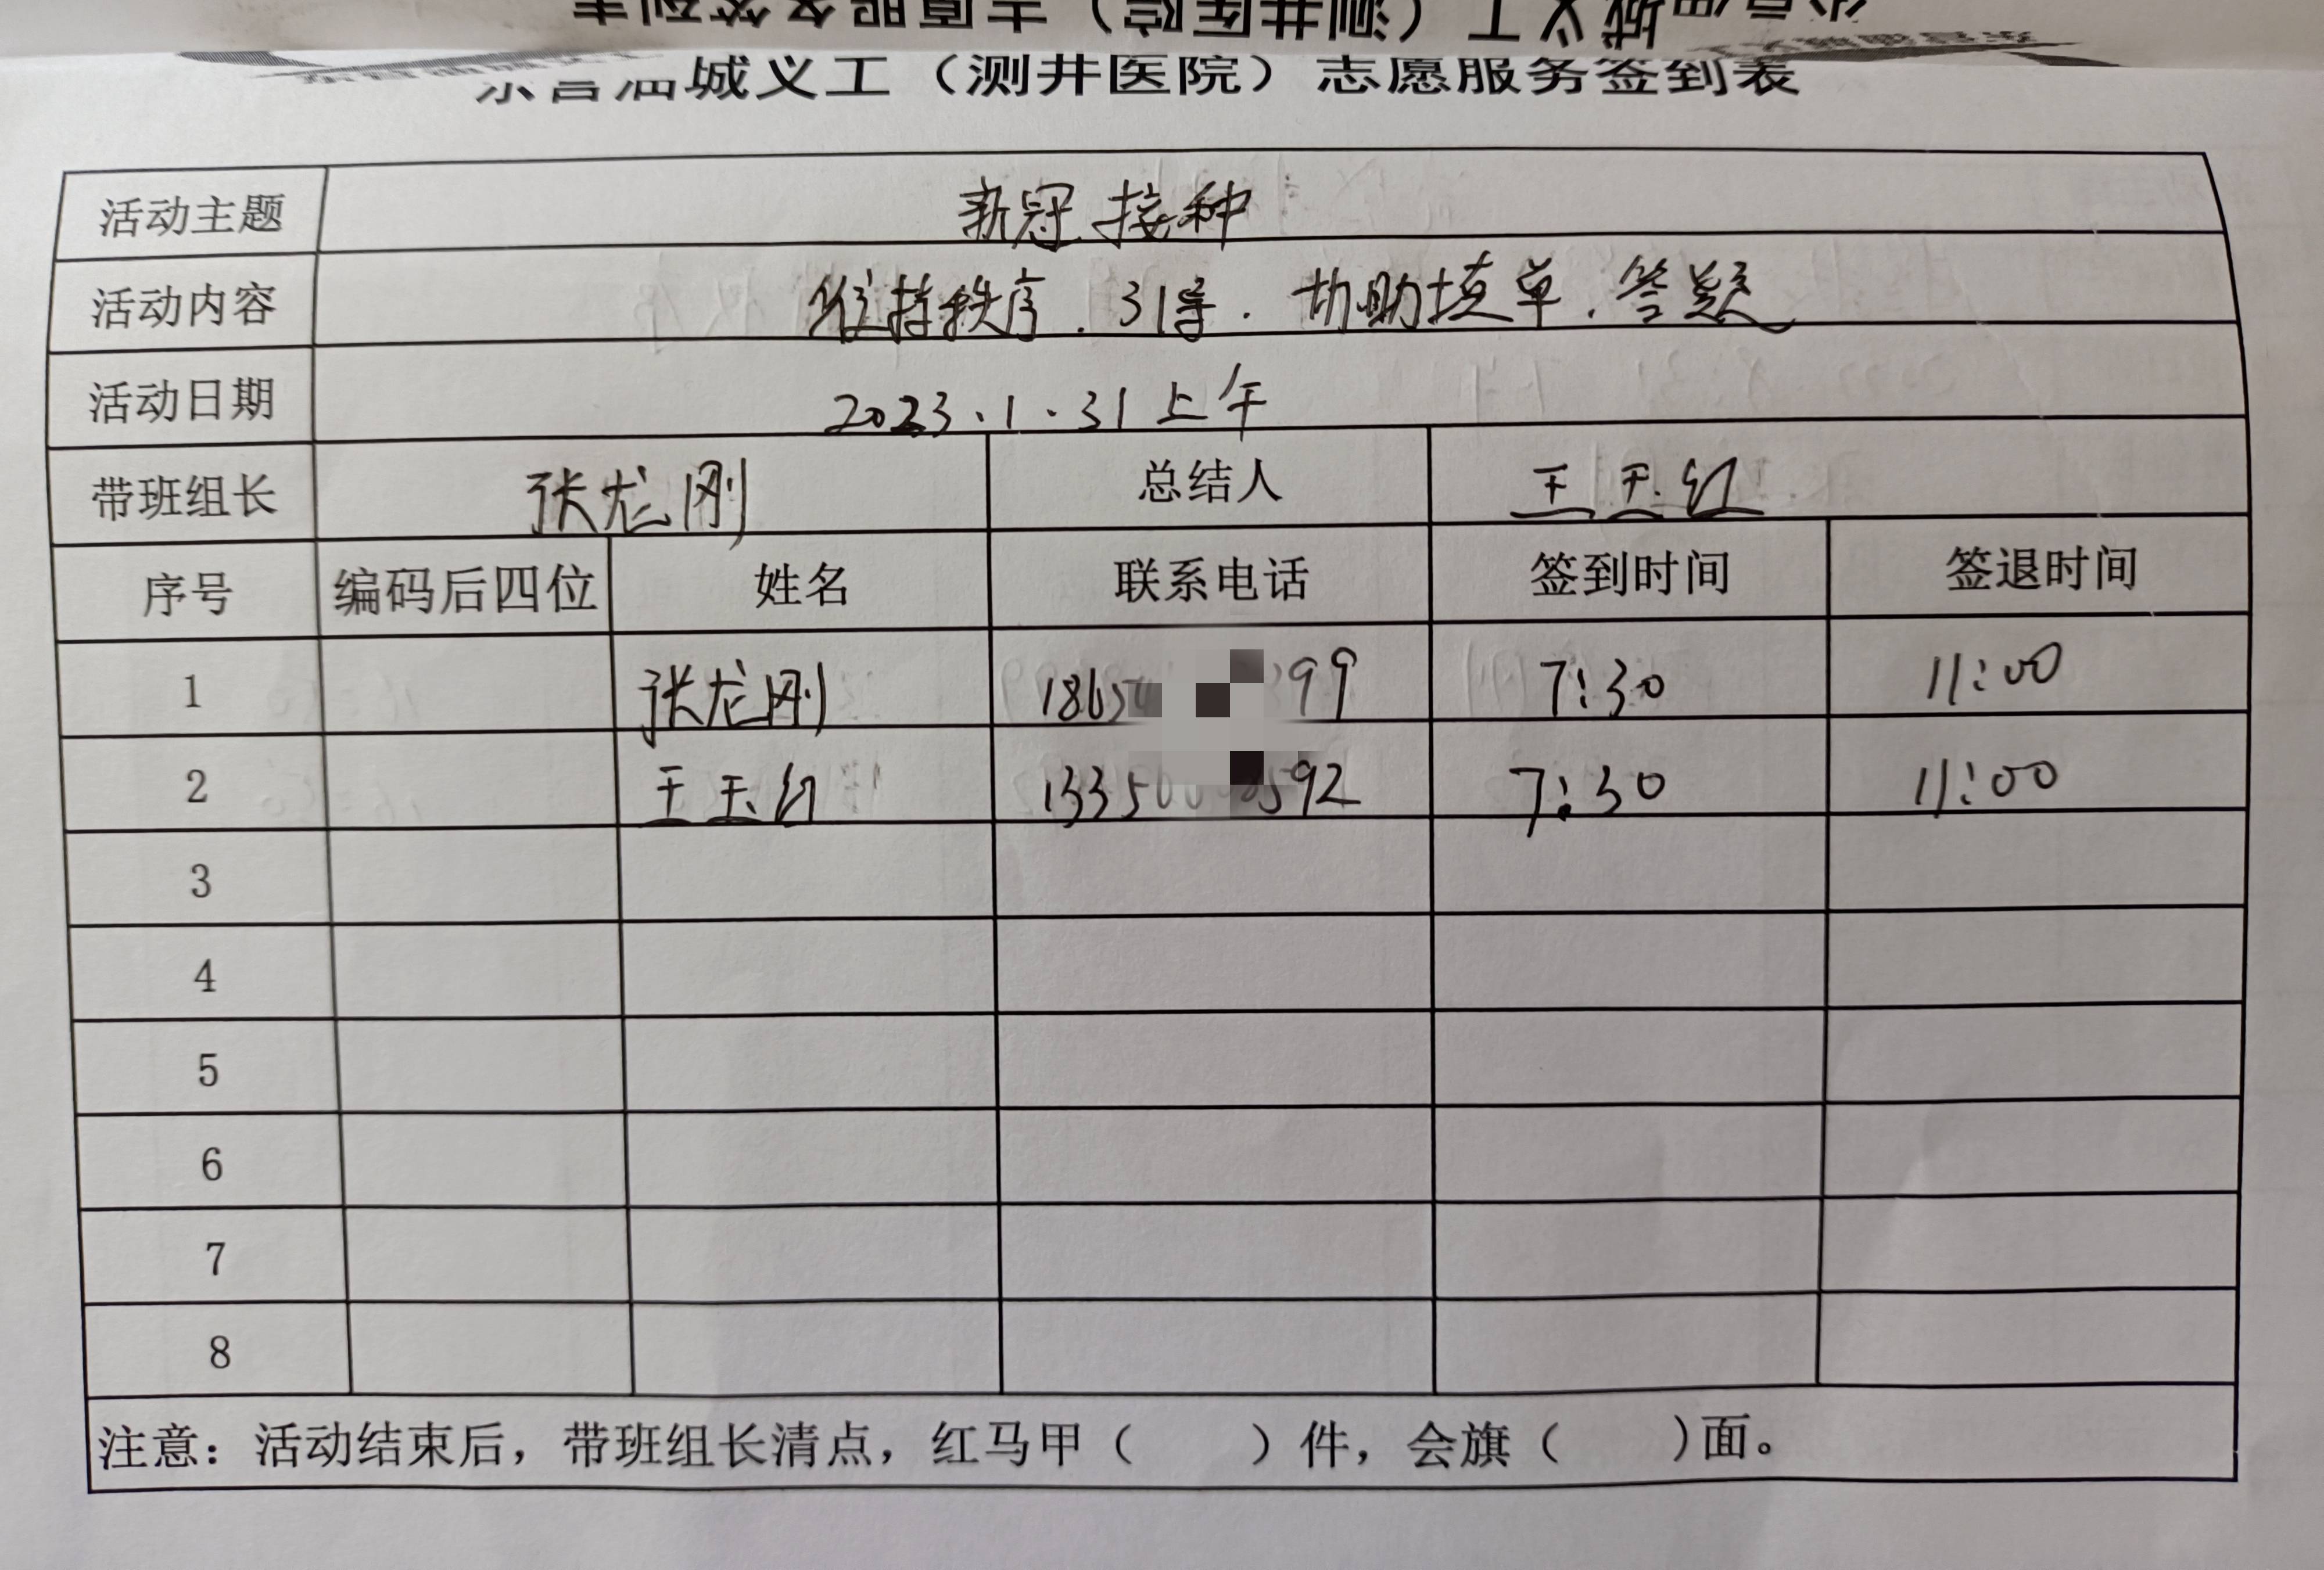 东营油城义工（测井医院）志愿服务签到表
活动主题 新冠接种
活动内容 维持秩序．引导．协助填单．答疑
活动日期 2023.1.31上午
带班组长 张龙刚 总结人 王玉红
序号 编码后四位 姓名 联系电话 签到时间 签退时间
1 张龙刚 7:30 11:00
2 王玉红 7:30 11:00
3
4
5
6
7
8
注意：活动结束后，带班组长清点，红马甲（ ）件，会旗（ ）面。